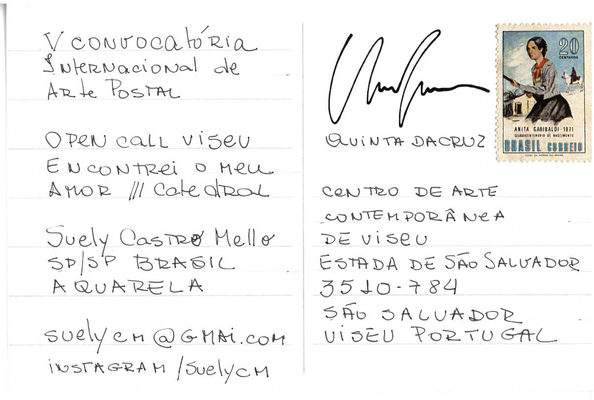 V CONVOCATÓRIA
INTERNACIONAL DE
ARTE POSTAL
OPEN CALL VISEU
ENCONTREI O MEU
AMOR /// CATEDRAL
SUELY CASTRO MELLO
SP/SP BRASIL
AQUARELA
SUELYCM@GMAI.COM
INSTAGRAM/SUELYCM
QUINTA DACRUZ
CENTRO DE ARTE
CONTEMPORÂNEA
DE VISEU
ESTADA DE SÃO SALVADOR
3510-784
SÃO SALVADOR
VISEU PORTUGAL
20
CENTAVOS
ANITA GARIBALDI-1971
SESQUICENTENÁRIO DE NASCIMENTO
BRASIL CORREIO